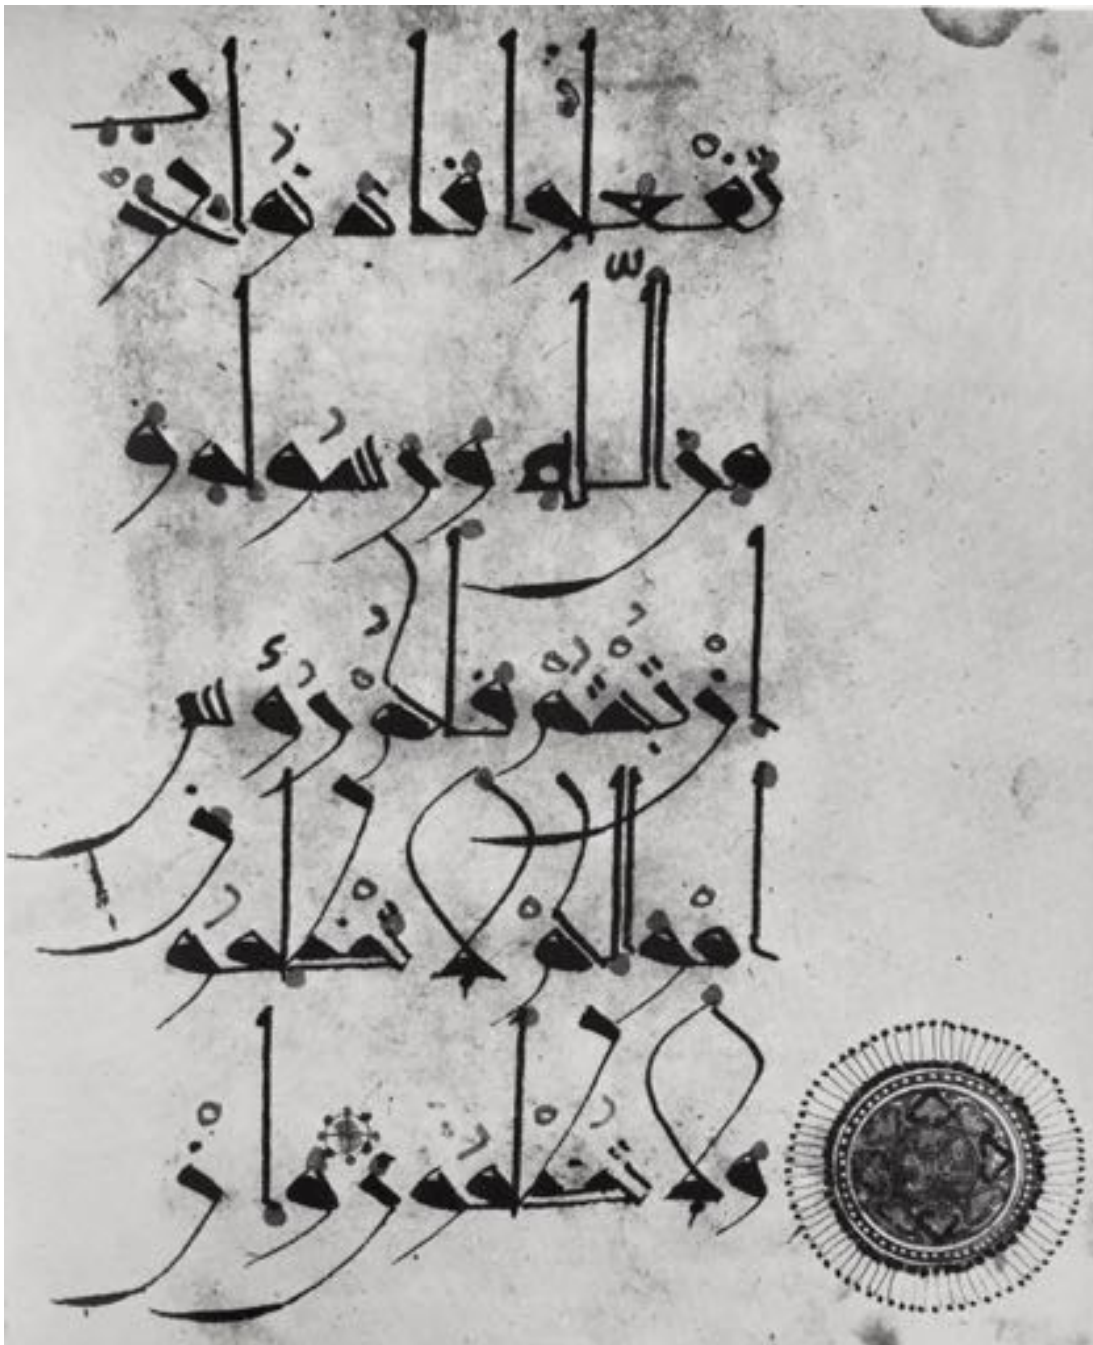 تفعلوا فأذنوا بحرب
من الله ورسوله و
إن تبتم فلكم رءوس
أمولكم لا تظلمون
ولا تظلمون وإن